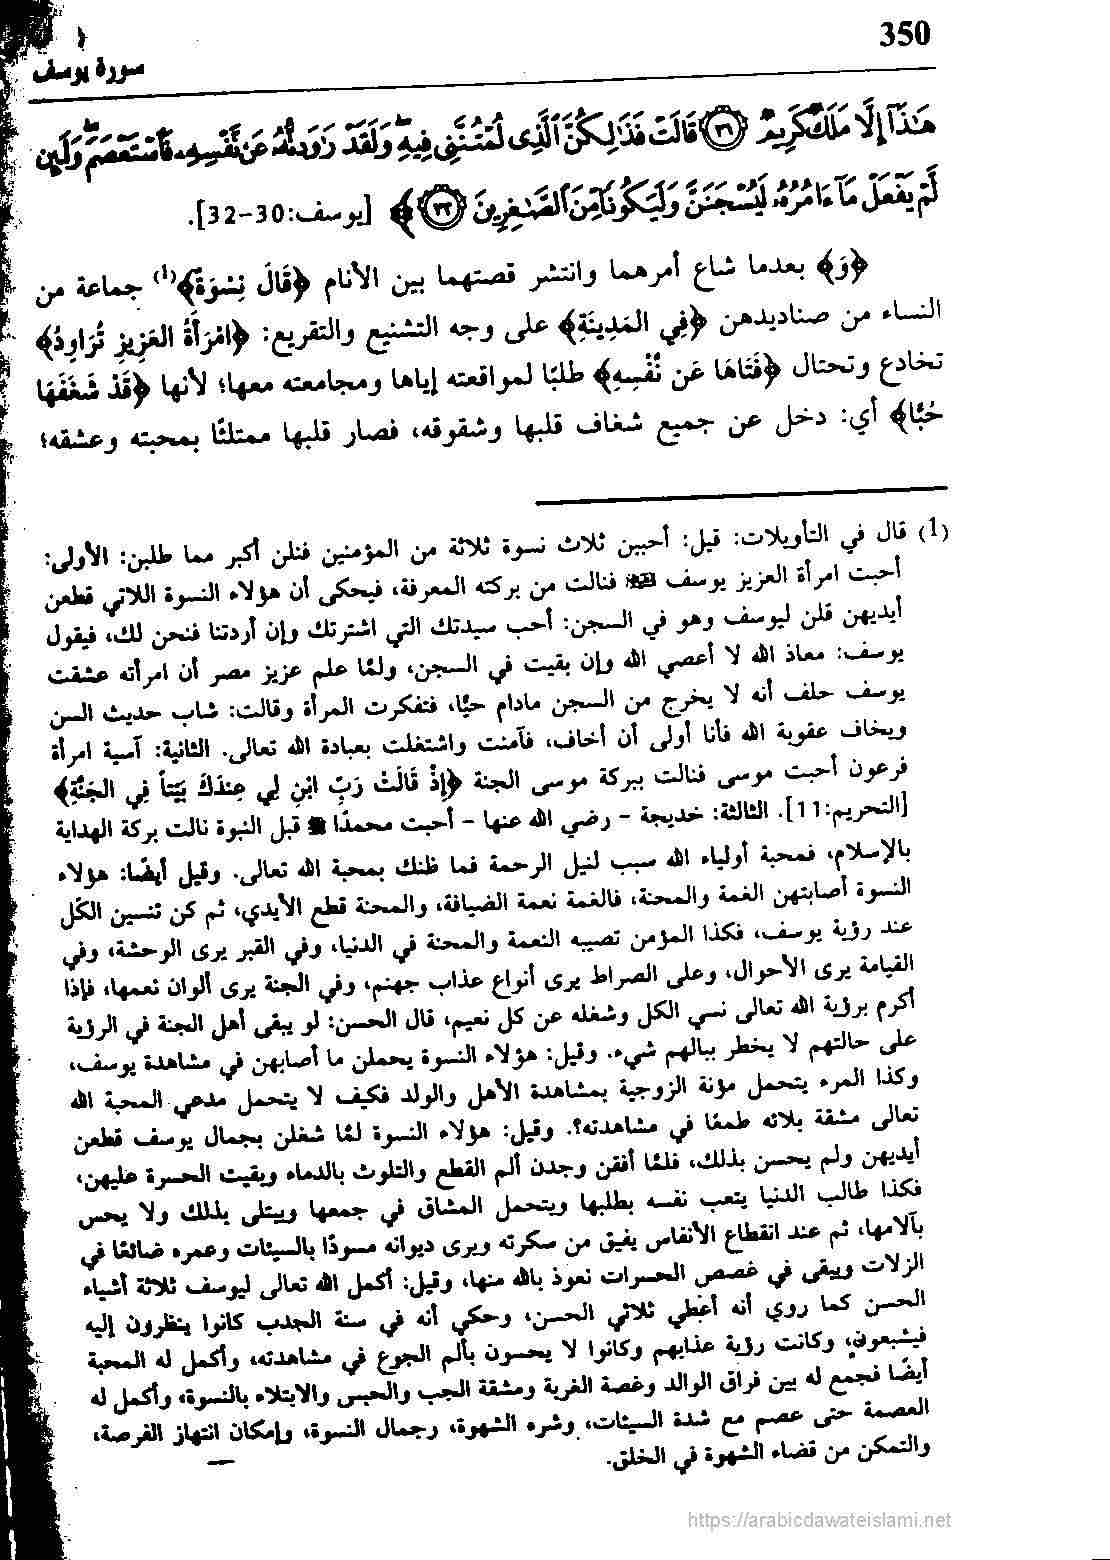 350
سورة يوسف
هَٰذَآ إِلَّا مَلَكٌ كَرِيمٌ ۝٣١ قَالَتْ فَذَٰلِكُنَّ ٱلَّذِى لُمْتُنَّنِى فِيهِ وَلَقَدْ رَٰوَدتُّهُۥ عَن نَّفْسِهِۦ فَٱسْتَعْصَمَ وَلَئِن
لَّمْ يَفْعَلْ مَآ ءَامُرُهُۥ لَيُسْجَنَنَّ وَلَيَكُونًا مِّنَ ٱلصَّٰغِرِينَ ۝٣٢ ﴾ [يوسف:30-32].
﴿وَ﴾ بعدما شاع أمرهما وانتشر قصتهما بين الأنام ﴿قَالَ نِسْوَةٌ﴾(1) جماعة من
النساء من صناديدهن ﴿فِي المَدِينَةِ﴾ على وجه التشنيع والتقريع: ﴿امْرَأَةُ العَزِيزِ تُرَاوِدُ﴾
تخادع وتحتال ﴿فَتَاهَا عَن نَّفْسِهِ﴾ طلبًا لمواقعته إياها ومجامعته معها؛ لأنها ﴿قَدْ شَغَفَهَا
حُبًّا﴾ أي: دخل عن جميع شغاف قلبها وشقوقه، فصار قلبها ممتلئًا بمحبته وعشقه؛
(1) قال في التأويلات: قيل: أحببن ثلاث نسوة ثلاثة من المؤمنين فنلن أكبر مما طلبن: الأولى:
أحبت امرأة العزيز يوسف فنالت من بركته المعرفة، فيحكى أن هؤلاء النسوة اللاتي قطعن
أيديهن قلن ليوسف وهو في السجن: أحب سيدتك التي اشترتك وإن أردتنا فنحن لك، فيقول
يوسف: معاذ الله لا أعصي الله وإن بقيت في السجن، ولمّا علم عزيز مصر أن امرأته عشقت
يوسف حلف أنه لا يخرج من السجن مادام حيًّا، فتفكرت المرأة وقالت: شاب حديث السن
ويخاف عقوبة الله فأنا أولى أن أخاف، فآمنت واشتغلت بعبادة الله تعالى. الثانية: آسية امرأة
فرعون أحبت موسى فنالت ببركة موسى الجنة ﴿إِذْ قَالَتْ رَبِّ ابْنِ لِي عِندَكَ بَيْتاً فِي الجَنَّةِ﴾
[التحريم:11]. الثالثة: خديجة - رضي الله عنها - أحبت محمدًا ﷺ قبل النبوة نالت بركة الهداية
بالإسلام، فمحبة أولياء الله سبب لنيل الرحمة فما ظنك بمحبة الله تعالى. وقيل أيضًا: هؤلاء
النسوة أصابتهن الغمة والمحنة، فالغمة نعمة الضيافة، والمحنة قطع الأيدي، ثم كن تنسين الكّل
عند رؤية يوسف، فكذا المؤمن تصيبه النعمة والمحنة في الدنيا، وفي القبر يرى الوحشة، وفي
القيامة يرى الأحوال، وعلى الصراط يرى أنواع عذاب جهنم، وفي الجنة يرى ألوان نعمها، فإذا
أكرم برؤية الله تعالى نسي الكل وشغله عن كل نعيم، قال الحسن: لو يبقى أهل الجنة في الرؤية
على حالتهم لا يخطر ببالهم شيء. وقيل: هؤلاء النسوة يحملن ما أصابهن في مشاهدة يوسف،
وكذا المرء يتحمل مؤنة الزوجية بمشاهدة الأهل والولد فكيف لا يتحمل مدعي المحبة الله
تعالى مشقة بلائه طمعًا في مشاهدته؟. وقيل: هؤلاء النسوة لمّا شغلن بجمال يوسف قطعن
أيديهن ولم يحسن بذلك، فلمّا أفقن وجدن ألم القطع والتلوث بالدماء وبقيت الحسرة عليهن،
فكذا طالب الدنيا يتعب نفسه بطلبها ويتحمل المشاق في جمعها ويبتلى بذلك ولا يحس
بآلامها، ثم عند انقطاع الأنفاس يفيق من سكرته ويرى ديوانه مسودًا بالسيئات وعمره ضائعًا في
الزلات ويبقى في غصص الحسرات نعوذ بالله منها، وقيل: أكمل الله تعالى ليوسف ثلاثة أشياء
الحسن كما روي أنه أعطي ثلاثي الحسن، وحكي أنه في سنة الجدب كانوا ينظرون إليه
فيشبعون، وكانت رؤية عذابهم وكانوا لا يحسون بألم الجوع في مشاهدته، وأكمل له المحبة
أيضًا فجمع له بين فراق الوالد وغصة الغربة ومشقة الجب والحبس والابتلاء بالنسوة، وأكمل له
العصمة حتى عصم مع شدة السيئات، وشره الشهوة، رجمال النسوة، وإمكان انتهاز الفرصة،
والتمكن من قضاء الشهوة في الخلق.
https://arabicdawateislami.net